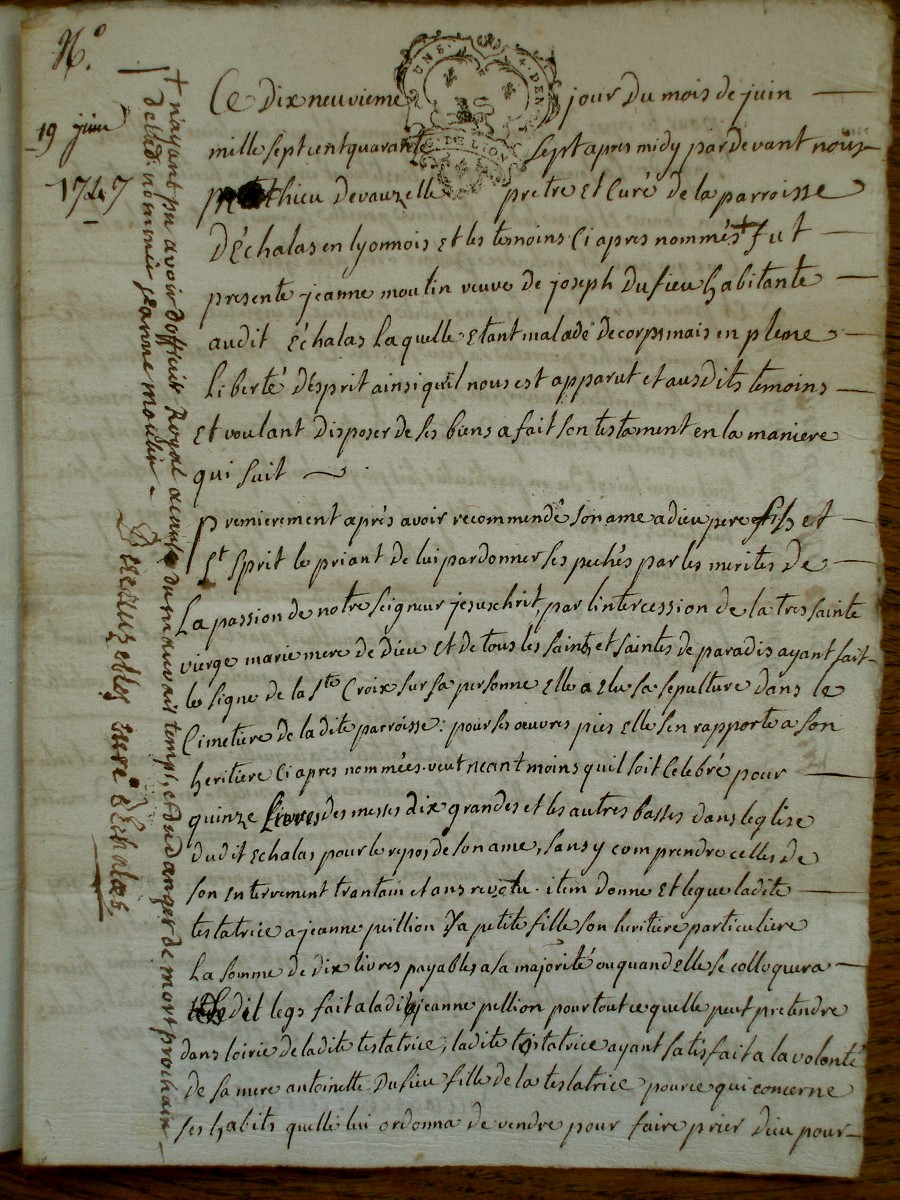 N.°
19 juin
1747
Ce Dix neuvieme jour Du mois de juin
mille sept cent quarante sept apres midy par devant nous
mathieu Devauzelle pretre Et Curé de la parroisse
D'Échalas en lyonnois Et les temoins Ci apres nommés + fut
presente jeanne moulin veuve De joseph Dufieu habitante
audit Échalas laquelle Etant malade De corps mais en pleine
liberté D'esprit ainsi qu'il nous est apparut et ausdits temoins
Et voulant Disposer de ses biens a fait son testament en la maniere
qui suit
premierement aprés avoir recommendé son ame a dieu pere fils et
St Esprit le priant de lui pardonner ses pechés par les merites De
La passion de notre seigneur jesuschrit, par l'intercession de la tres sainte
vierge marie mere de Dieu Et de tous les saints et saintes de paradis ayant fait
le signe de la Ste Croix sur sa personne Elle a Elu sa sepulture dans le
Cimetiere de la dite parroisse: pour ses oeuvres pies elle s'en rapporte a son
heritiere Ci apres nommées. veut neantmoins qu'il soit Celebré pour
quinze livres des messes dix grandes et les autres basses dans leglise
dudit Echalas pour le repos de son ame, sans y comprendre celles de
son Enterrement trantain et ans revolu. item donne Et legue ladite
testatrice a jeanne pillion sa petite fille son heritiere particuliere
La somme de dix livres payables a sa majorité ou quand Elle se colloquera
dit legs fait a la dite jeanne pillion pour tout ce quelle peut pretendre
dans loirie de ladite testatrice, ladite testatrice ayant satisfait a la volonté
de sa mere antoinette Dufieu fille de la testatrice pour ce qui concerne
ses habits quelle lui ordonna de vendre pour faire prier dieu pour
+ n'ayant pu avoir d'officier Royal a cause du mauvais temps, et du danger de mort prochain
de ladite nommée jeanne moulin.
Devauzelles curé d'Echalas.